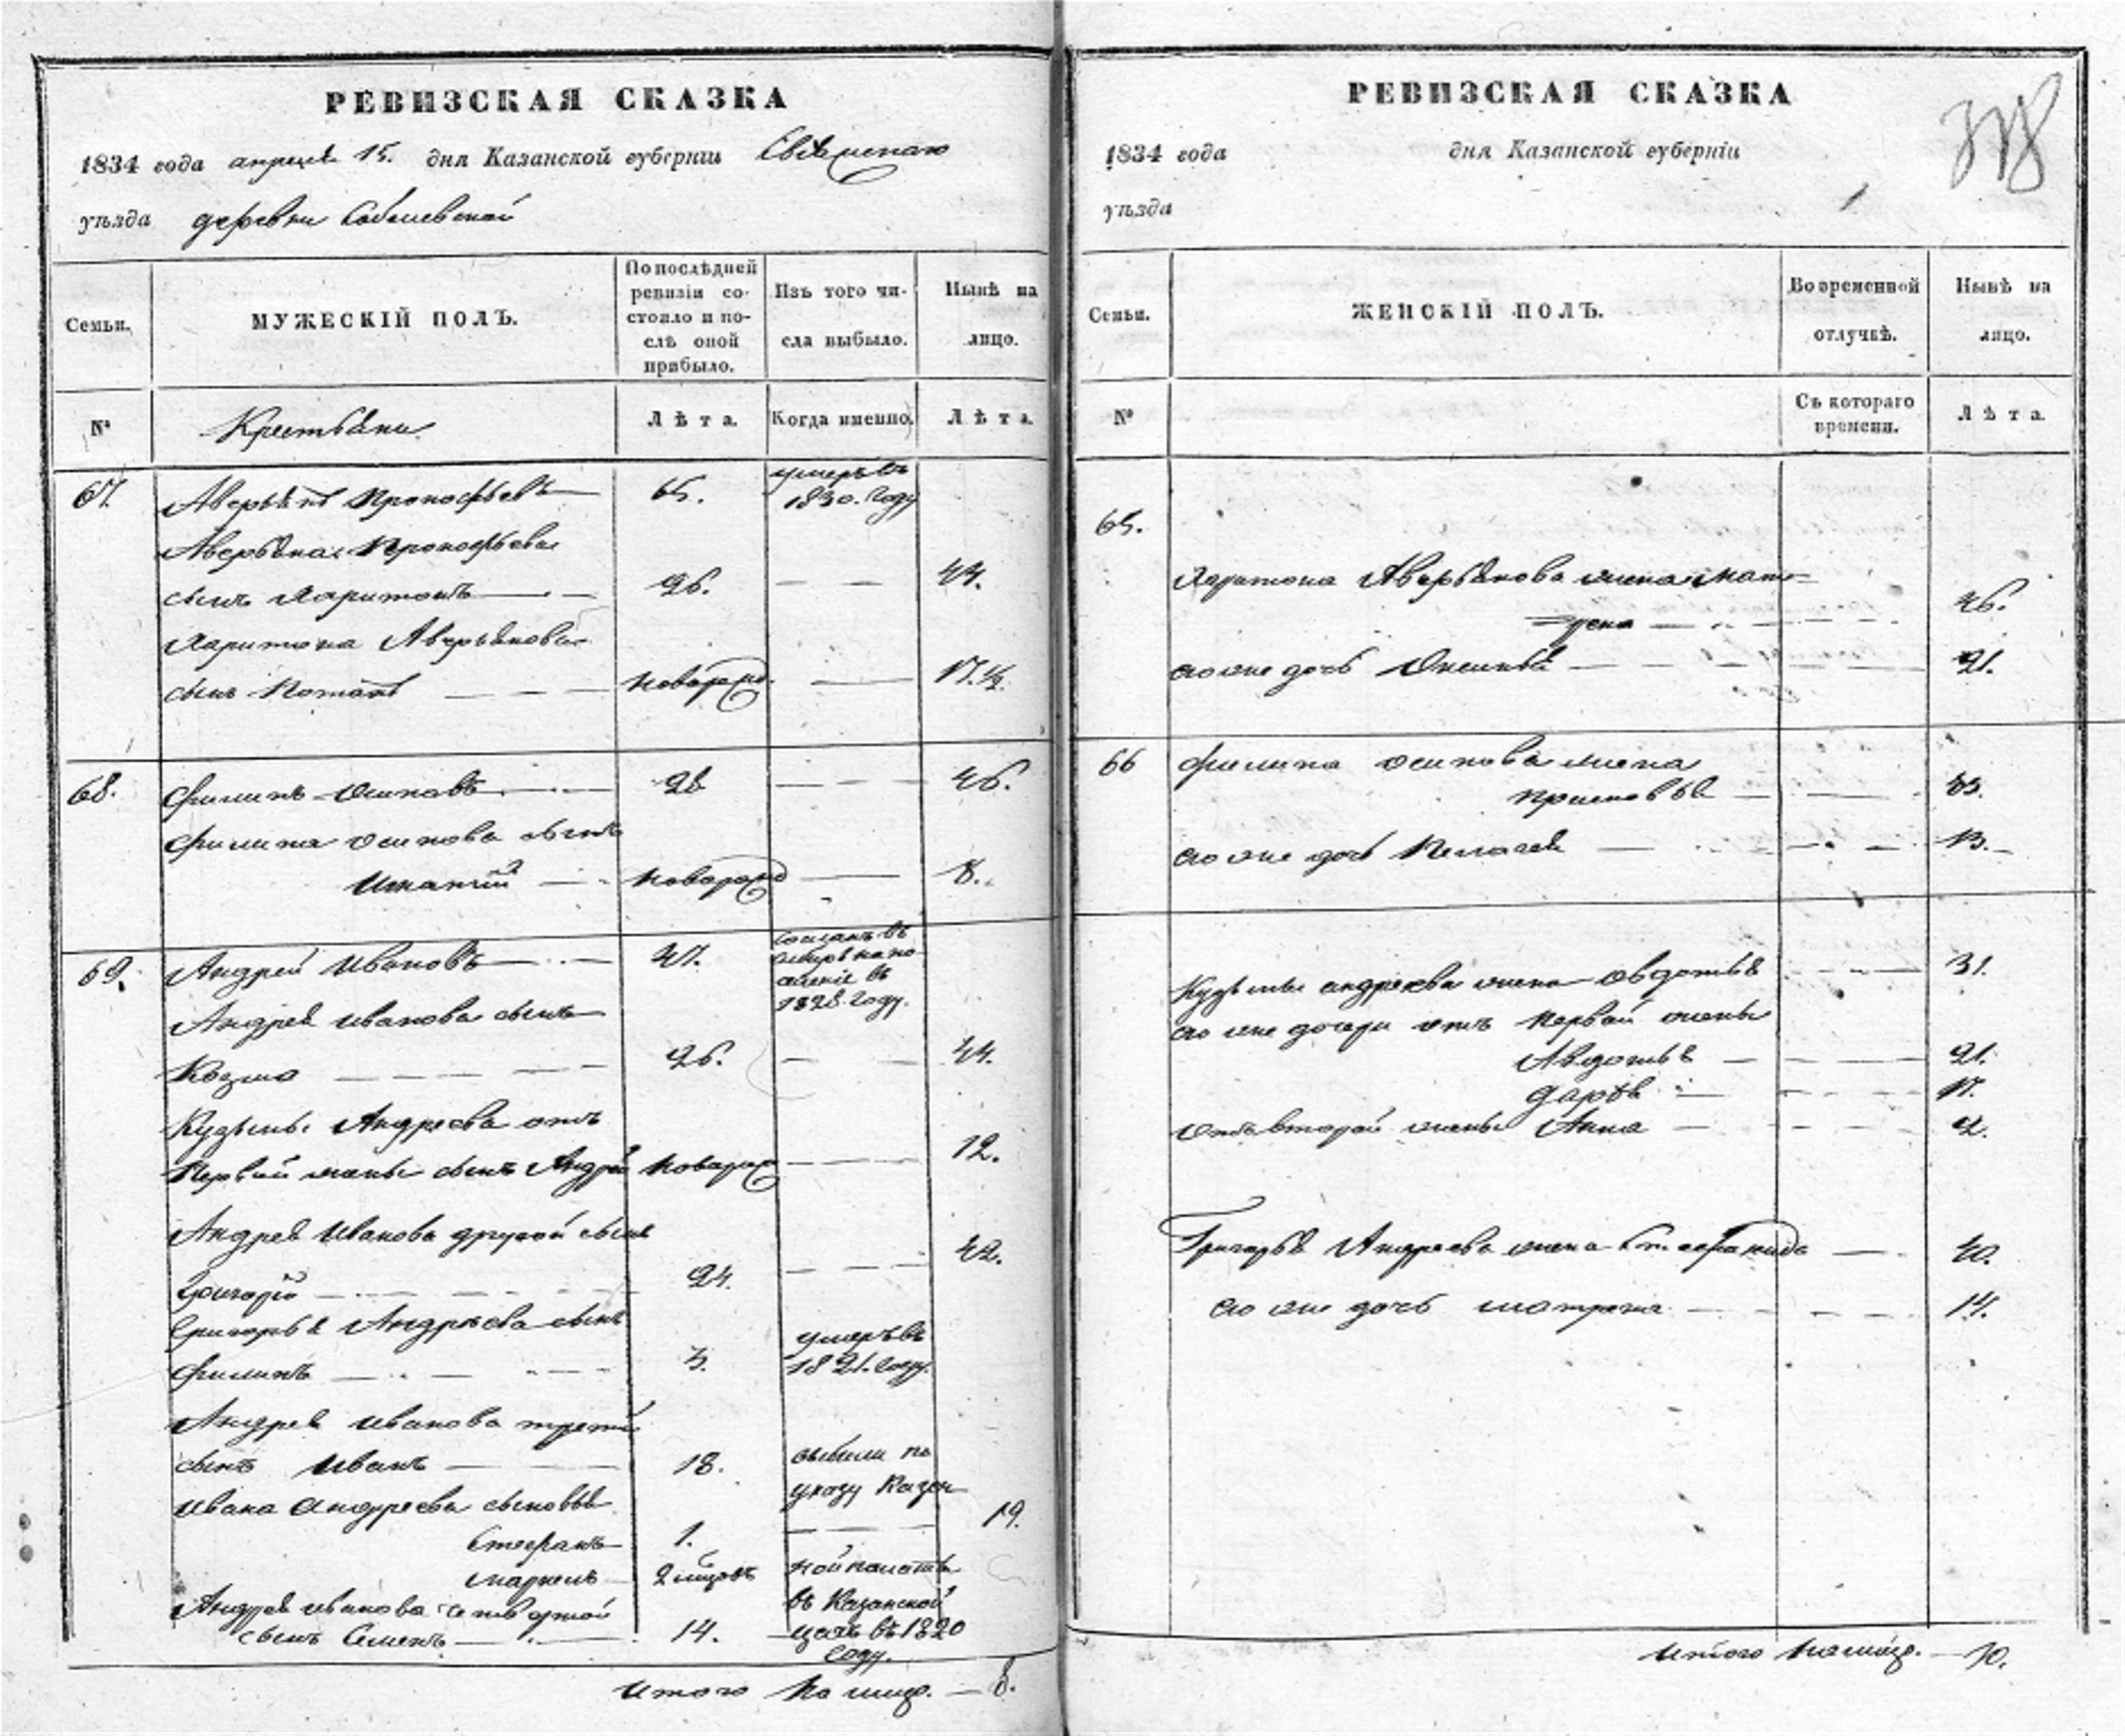 РЕВИЗСКАЯ СКАЗКА
1834 года апреля 15. дня Казанской губернiи Свiяжскаго
уѣзда деревни Соболевской
Семьи.
МУЖЕСКIЙ ПОЛЪ.
По послѣдней ревизiи состояло и послѣ оной прибыло.
Изъ того числа выбыло.
Нынѣ на лицо.
№
Крестьяне
Лѣта.
Когда именно.
Лѣта.
67. Аверьянъ Прокофьевъ 65. умеръ въ 1830. году
Аверьяна Прокофьева
сынъ Харитонъ 26. 44.
Харитона Аверьянова
сынъ Потапъ новорожд. 17.½.
68. Филипъ Осиповъ 28 46.
Филипа Осипова сынъ
Игнатiй новорожд 8.
69. Андрей Ивановъ 47. сосланъ въ сибирь на поселенiе въ 1828. году.
Андрея Иванова сынъ
Козма 26. 44.
Кузьмы Андреева отъ
первой жены сынъ Андрей новорож 12.
Андрея Иванова другой сынъ
Григорiй 24. 42.
Григорья Андреева сынъ
Филипъ 3. умеръ въ 1821. году.
Андрея Иванова третiй
сынъ Иванъ 18. выбыли по указу Казен
Ивана Андреева сыновья
Стефанъ 1. 19.
Маркелъ 2 мѣсяцовъ ной палаты
Андрея Иванова четвертой въ Казанской
сынъ Семенъ 14. уѣздъ въ 1820 году.
Итого на лицо. 8.
РЕВИЗСКАЯ СКАЗКА
1834 года дня Казанской губернiи
уѣзда
Семьи.
ЖЕНСКIЙ ПОЛЪ.
Во временной отлучкѣ.
Нынѣ на лицо.
№
Съ котораго времени.
Лѣта.
65.
Харитона Аверьянова жена Мат
рена 46.
его же дочь Оксинья 21.
66 Филипа Осипова жена
43.
его же дочь Пелагея 13.
Кузьмы Андреева жена Овдотья 31.
его же дочери отъ первой жены
Авдотья 21.
Дарья 17.
Отъ второй жены Анна 2.
Григорья Андреева жена Стефанида 40.
его же дочь Матрена 14.
Итого на лицо. 10.